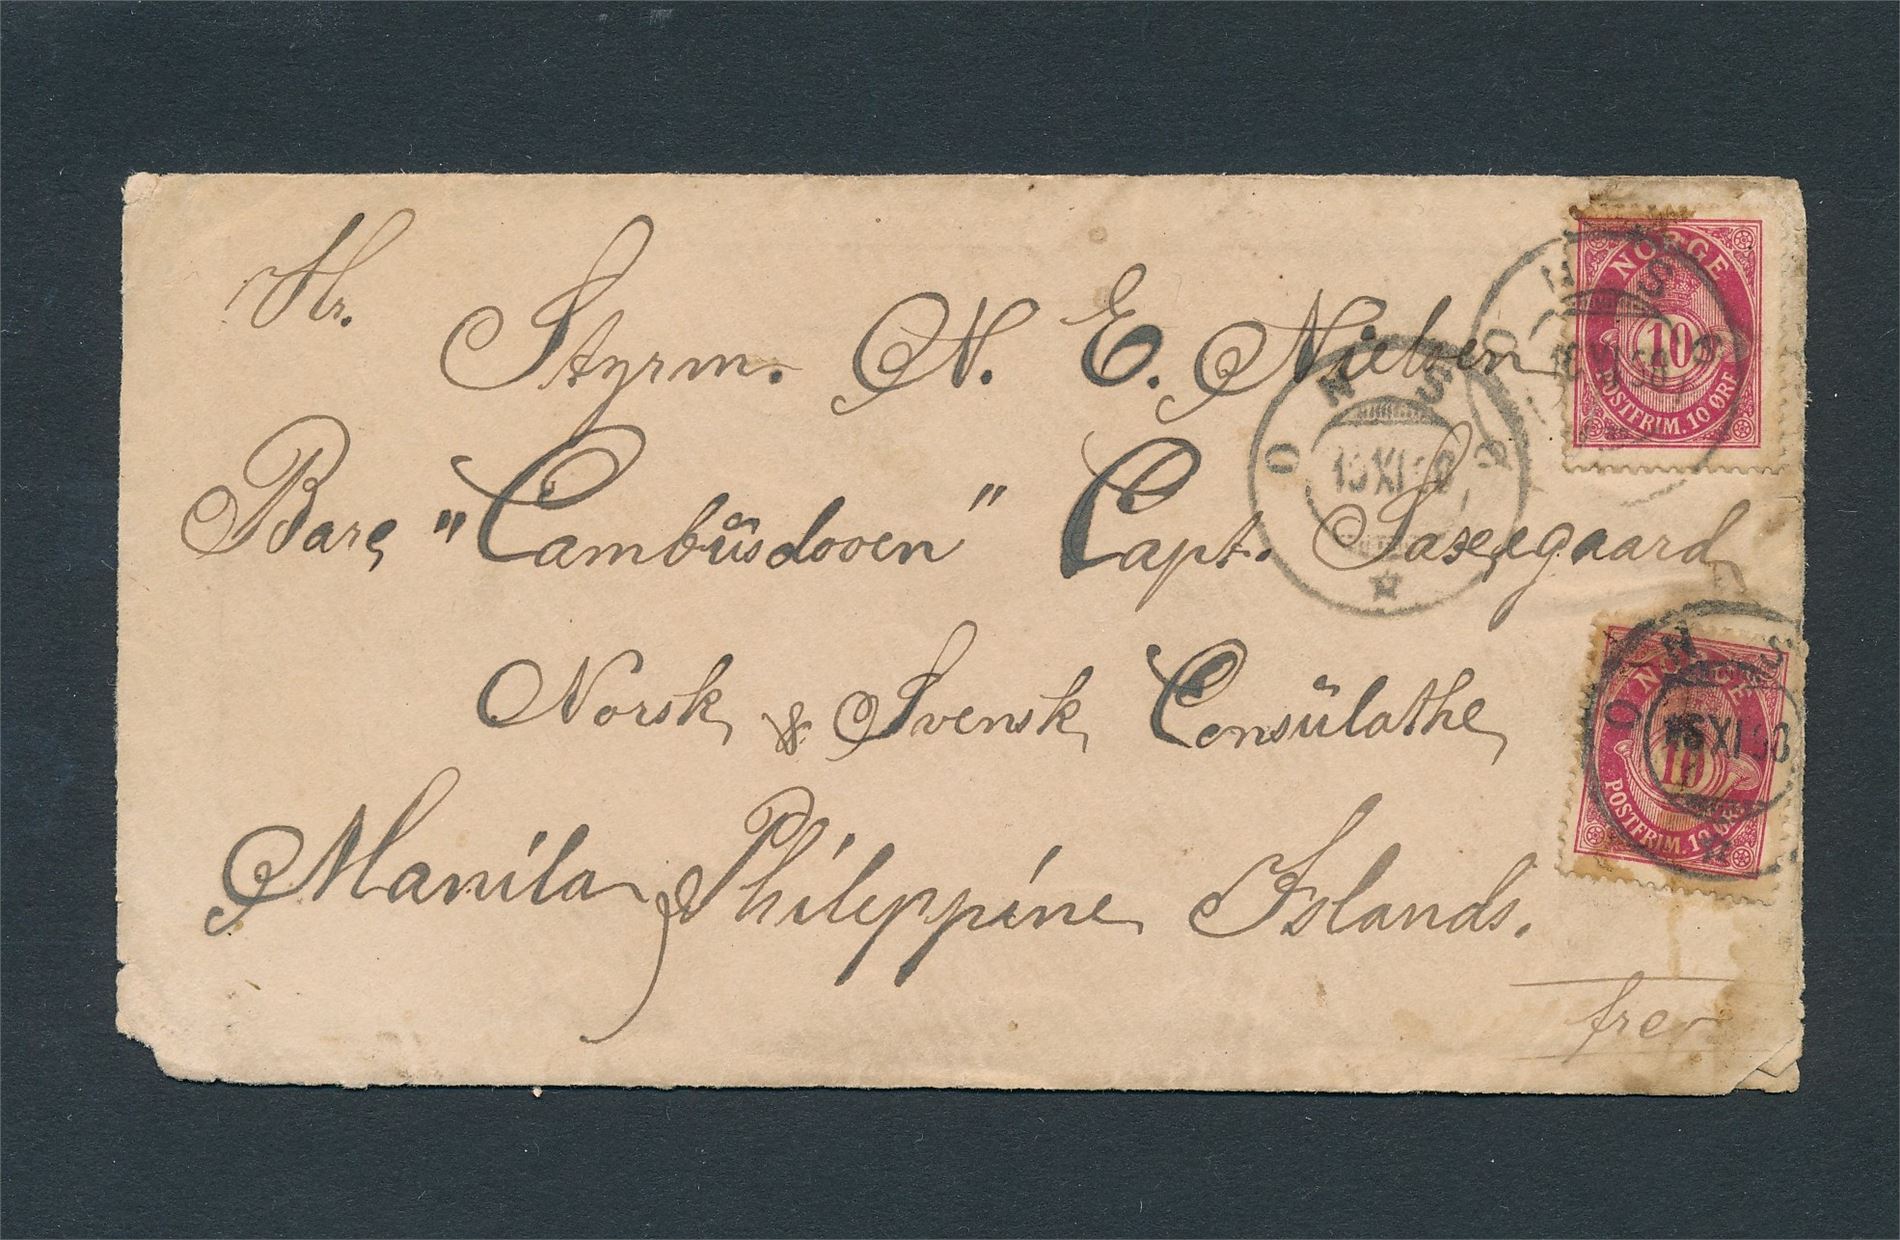 Hr.
Styrm. N. E. Nielsen
Barc "Cambüsdoon" Capt. Saxegaard
Norsk & Svensk Consülathe
Manila, Philippine Islands.
NORGE
10
POSTFRIM. 10 ØRE
ONSØ
XI
NORGE
10
POSTFRIM. 10 ØRE
XI